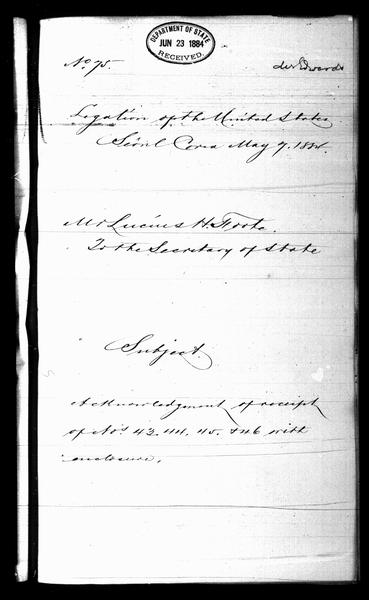 DEPARTMENT OF STATE
JUN 23 1884
RECEIVED.
No. 75
Legation of the United States
Séoul Corea May 7. 1884.
Mr Lucius H. Foote.
To the Secretary of State
Subject.
Acknowledgment of receipt
of Nos. 43. 44. 45. & 46 with
enclosure.